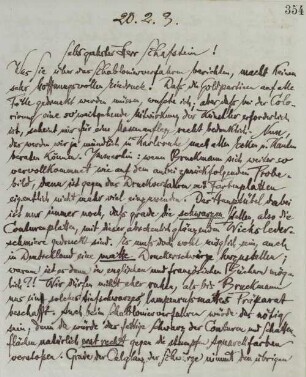 354
20.2.3.
Sehr geehrter Herr Schafstein!
Was Sie über das Schablonierverfahren berichten, macht keinen
sehr hoffnungsvollen Eindruck. Daß die Goldpartien auf alle
Fälle gedruckt werden müssen, wußte ich, aber daß bei der Colo-
rierung eine so weitgehende Mitwirkung der Künstler erforderlich
ist, scheint mir für eine Massenauflage recht bedenklich. Nun,
das werden wir ja mündlich in Karlsruhe nach alle Seiten
beraten können. Immerhin: wenn Bruckmann sich weiter so
vervollkommnet wie auf dem anbei zurückfolgenden Probe-
bild, dann ist gegen das Druckverfahren mit Farbenplatten
eigentlich nicht mehr viel einzuwenden. Das Hauptübel dabei
ist nur immer noch, daß grade die schwarzen Stellen, also die
Conturenplatten, mit dieser abscheulich glänzenden Wichslederschmiere
gedruckt sind. Es muß doch wohl möglich sein, auch
in Deutschland eine matte Druckerschwärze herzustellen;
warum ist es denn in englischen und französischen Büchern mög-
lich?! Wir dürfen nicht eher ruhn, als bis Bruckmann
uns ein solches tiefschwarzes lampenrußmattes Präparat
beschafft. Auch beim Schablonierverfahren würde das nötig
sein; denn da würde das fettige Schwarz der Conturen und Schatten-
flächen natürlich erst recht gegen die stumpfen Aquarellfarben
verstoßen. Grade der Ölglanz der Schwärze nimmt den übrigen